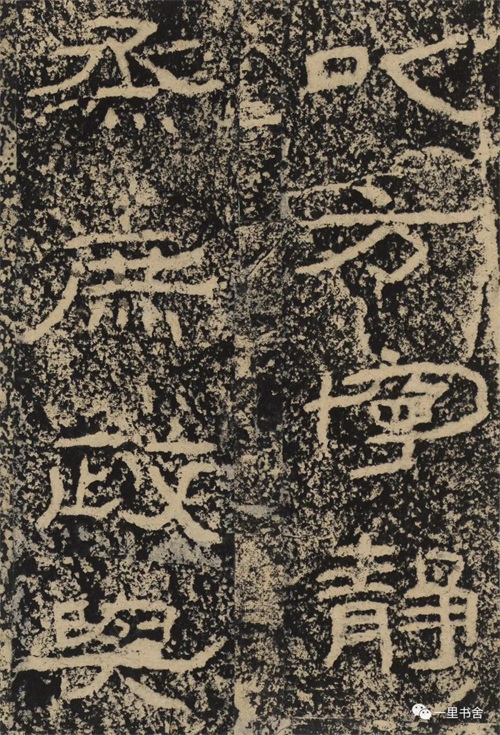 以方寧靜
烝庶政與
一里书舍